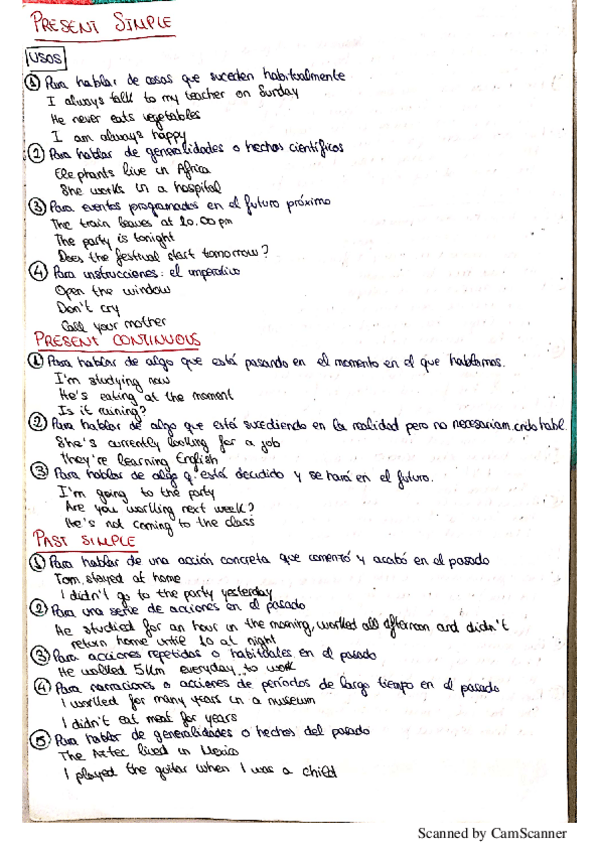 PRESENT SIMPLE
USOS
① Para hablar de cosas que suceden habitualmente
I always talk to my teacher on Sunday
He never eats vegetables
I am always happy
② Para hablar de generalidades o hechos científicos
Elephants live in Africa
She works in a hospital
③ Para eventos programados en el futuro próximo
The train leaves at 10.00 pm
The party is tonight
Does the festival start tomorrow?
④ Para instrucciones: el imperativo
Open the window
Don't cry
Call your mother
PRESENT CONTINUOUS
① Para hablar de algo que está pasando en el momento en el que hablamos.
I'm studying now
He's eating at the moment
Is it raining?
② Para hablar de algo que está sucediendo en la realidad pero no necesariam. cndo habl
She's currently looking for a job
They're learning English
③ Para hablar de algo q. está decidido y se hará en el futuro.
I'm going to the party
Are you working next week?
He's not coming to the class
PAST SIMPLE
① Para hablar de una acción concreta que comenzó y acabó en el pasado
Tom stayed at home
I didn't go to the party yesterday
② Para una serie de acciones en el pasado
He studied for an hour in the morning, worked all afternoon and didn't
return home until 10 at night
③ Para acciones repetidas o habituales en el pasado
He walked 5Km everyday to work
④ Para narraciones o acciones de períodos de largo tiempo en el pasado
I worked for many years in a museum
I didn't eat meat for years
⑤ Para hablar de generalidades o hechos del pasado
The Aztec lived in Mexico
I played the guitar when I was a child
Scanned by CamScanner